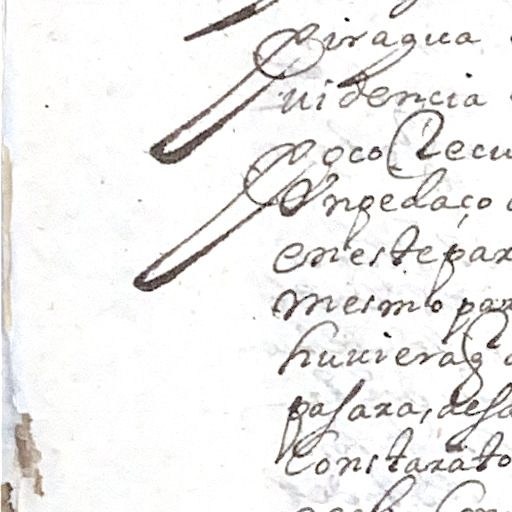 Piragua
uidencia
Poco Recu
Vn pedaço
en este par
mesmo par
huuiera q
pasara, desa
Constara to